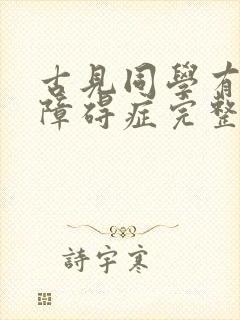 古見同學有
障碍症完整
詩宇寒